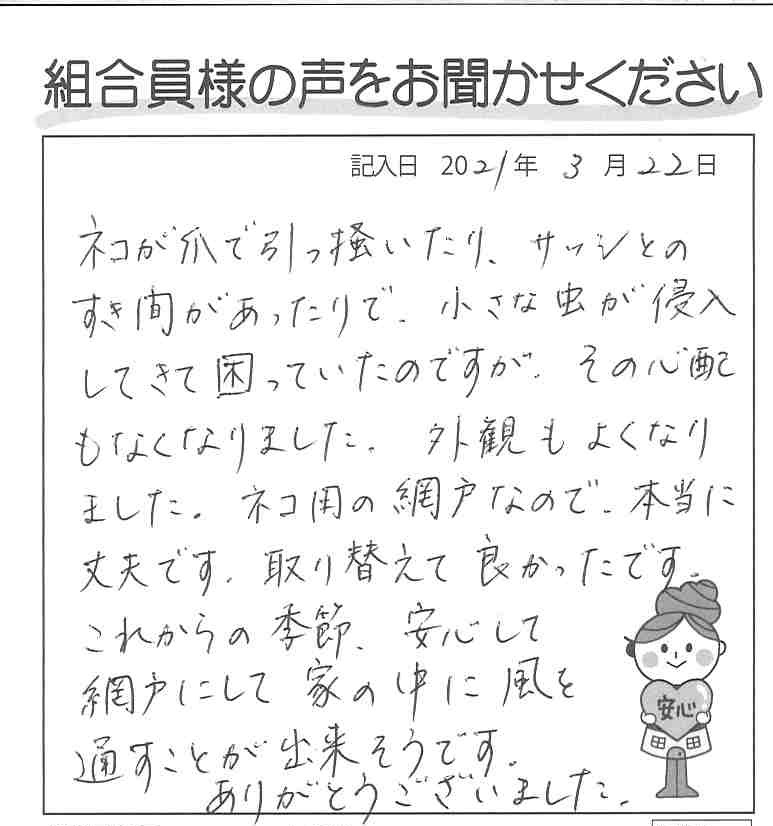 組合員様の声をお聞かせください
記入日 2021年 3月22日
ネコが爪で引っ掻いたり、サッシとの
すき間があったりで、小さな虫が侵入
してきて困っていたのですが、その心配
もなくなりました。外観もよくなり
ました。ネコ用の網戸なので、本当に
丈夫です。取り替えて良かったです。
これからの季節、安心して
網戸にして家の中に風を
通すことが出来そうです。
ありがとうございました。
安心